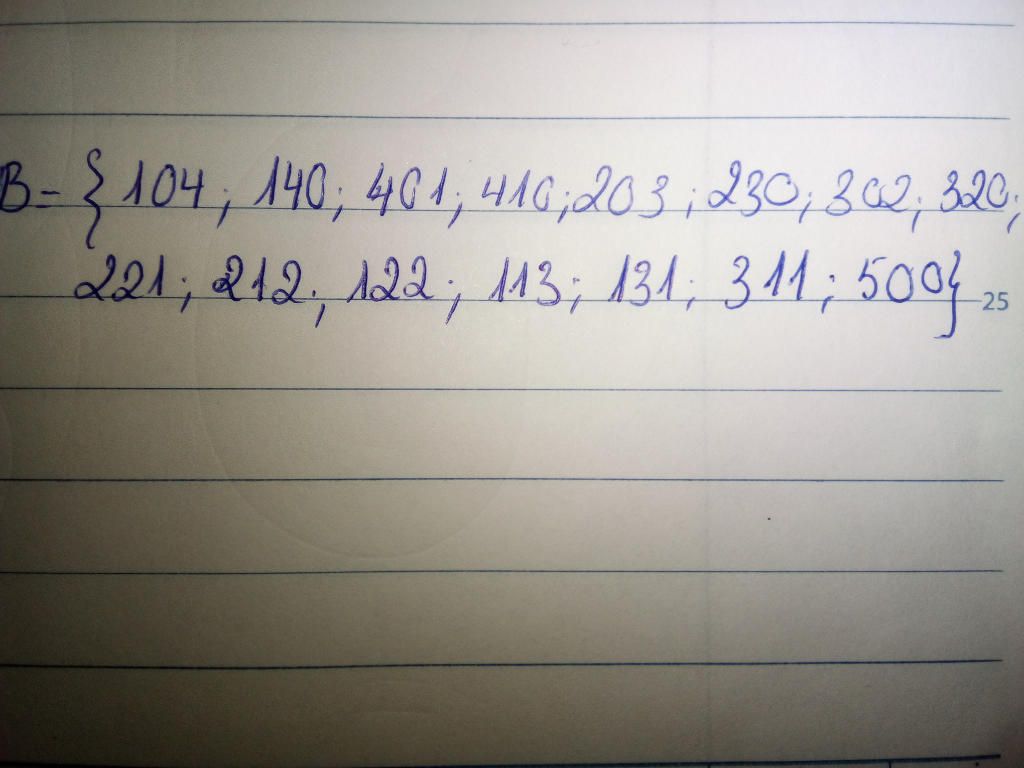 B = { 104; 140; 401; 410; 203; 230; 302; 320;
221; 212; 122; 113; 131; 311; 500}
25